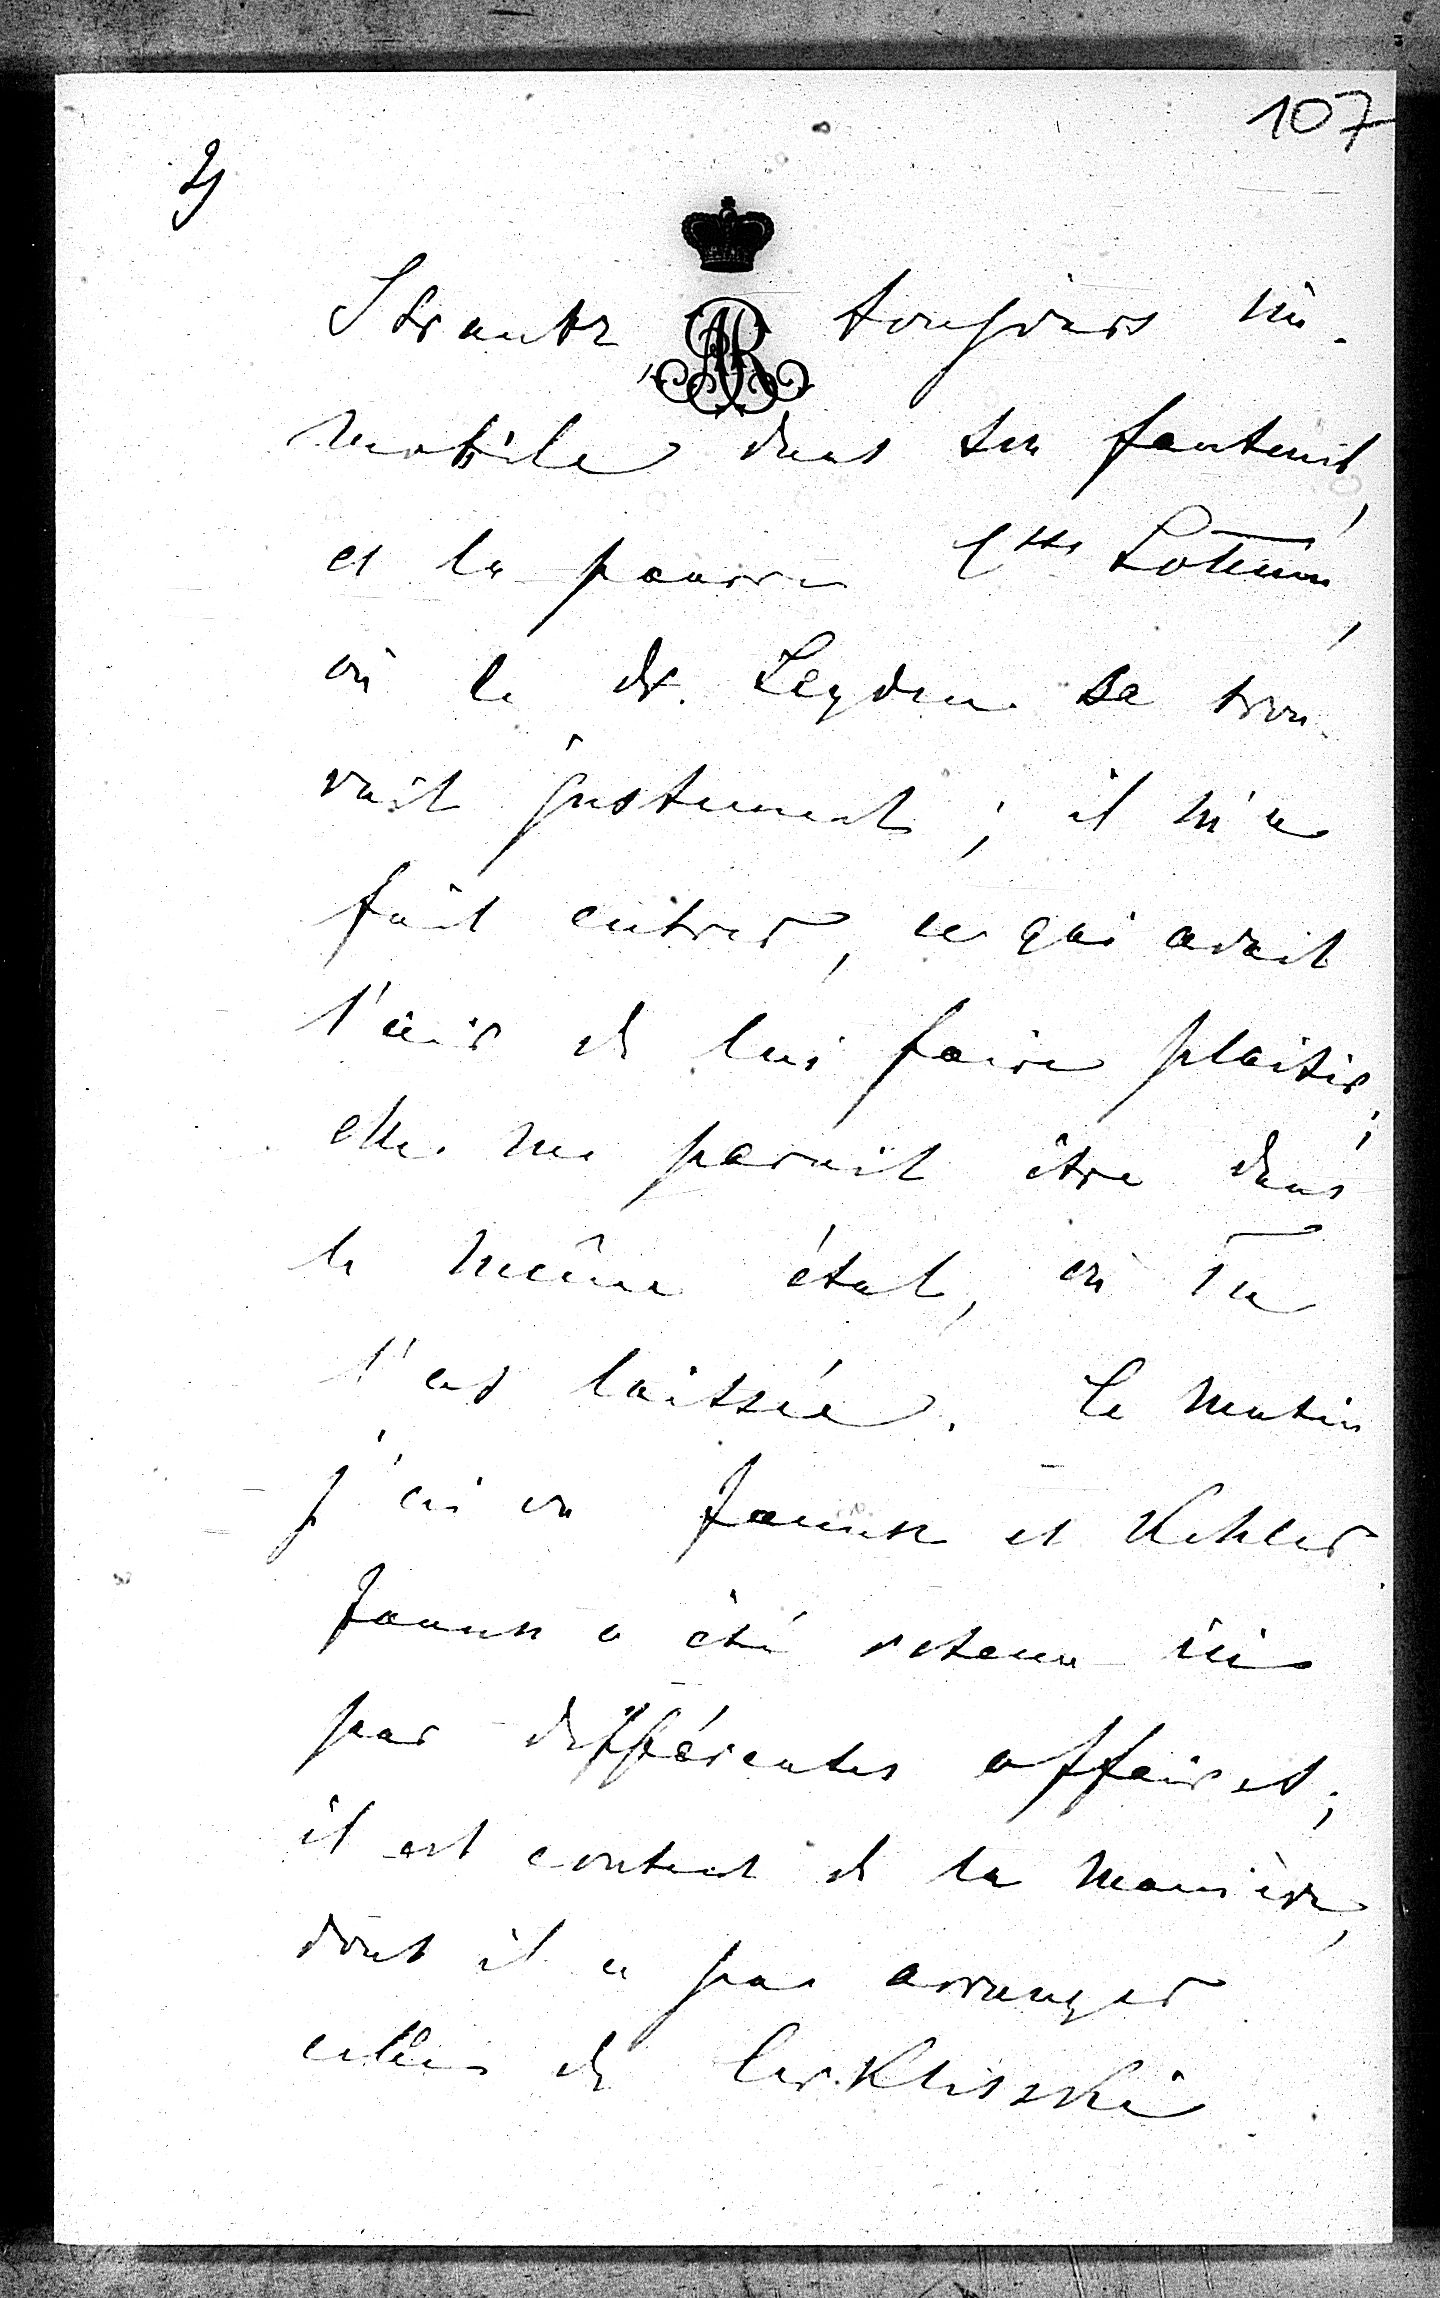 107
2)
Strantz toujours im-
mobile dans son fauteuil,
et la pauvre Ctsse
où le dr. Leyden se trou-
vait justement; il m'a
fait entrer, ce qui avait
l'air de lui faire plaisir;
elle me parait être dans
le même état, où Tu
l'as laissée. Ce matin
j'ai vu et Kehler.
a été retenu ici
par différentes affaires;
il est content de la manière,
dont il a pu arranger
celle de